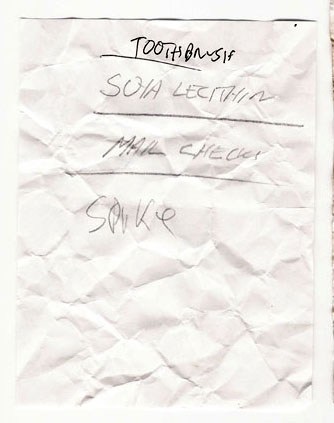 TOOTHBRUSH
SOYA LECITHIN
MAIL CHECKS
SPIKe